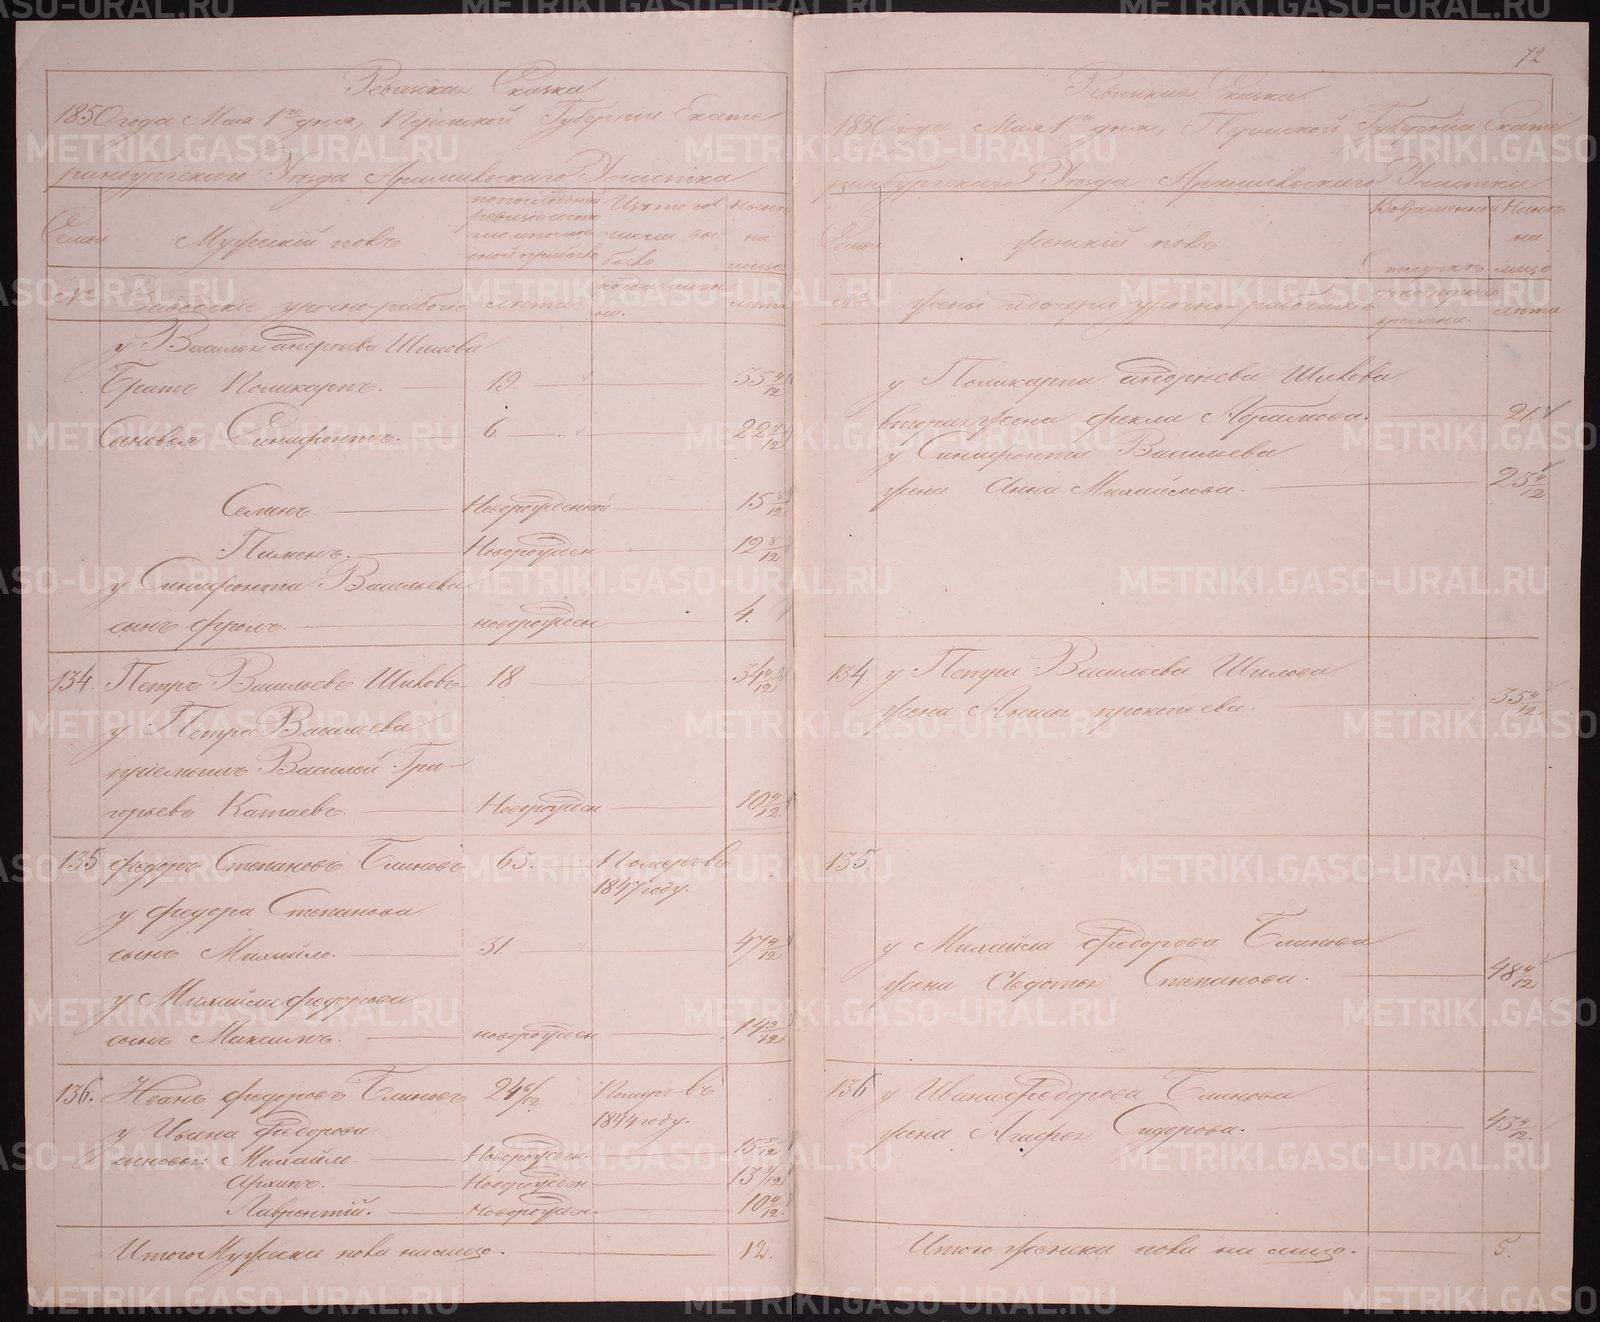 Ревизская Сказка
1850 года Мая 1го дня, Пермской Губернии Екате
ринбургскаго Уезда Арамильскаго Участка
Семьи
Мужескiй полъ
по последней ревизiи состояло
Изъ того числа выбыло
Ныне на лицо
№
Заводскiе урочно-рабочiе
лета
когда именно.
лета.
у Василья Андреева Шилова
Братъ Поликарпъ. 19. 35 4/12
Сыновья Синифонтъ. 6. 22 4/12
Селинъ. Новорожденной 15 8/12
Пименъ. Новорожден 12 8/12
у Синифонта Васильева
сынъ Фролъ. новорожден 4.
134. Петръ Васильевъ Шиловъ 18. 34 4/12
у Петра Васильева
прiемышъ Василей Гри-
горьевъ Катаевъ. Новорожден 10 4/12
135 Федоръ Степановъ Блиновъ 63. Померъ въ
1847 году.
у Федора Степанова
сынъ Михайло. 31. 47 4/12
у Михайла Федорова
сынъ Максимъ. новорожден 14 2/12
136. Иванъ Федоровъ Блиновъ 24 6/12 Померъ въ
1844 году.
у Ивана Федорова
сыновья: Михайло. Новорожден. 15 5/12
Архипъ. Новорожден 13 3/12
Лаврентiй. Новорожден 10 4/12
Итого Мужеска пола на лицо. 12.
72
Ревизская Сказка.
1850 года Мая 1го дня, Пермской Губернiи Екате
ринбургскаго Уезда Арамильскаго Участка
Семьи
Женскiй полъ
Во временной отлучке
Ныне на лицо
№
Жены и дочери урочно-рабочихъ
съ котораго времени.
лета
у Поликарпа Андреева Шилова
вторая жена Фекла Абрамова. 21.
у Синифонта Васильева
жена Анна Михайлова. 23 4/12
134 у Петра Васильева Шилова
жена Анисья Прокопьева. 35 4/12
135.
у Михайла Федорова Блинова
жена Авдотья Степанова. 48 4/12
136 у Ивана Федорова Блинова
жена Агафья Сидорова. 43 4/12
Итого женска пола на лицо. 5.
METRIKI.GASO-URAL.RU